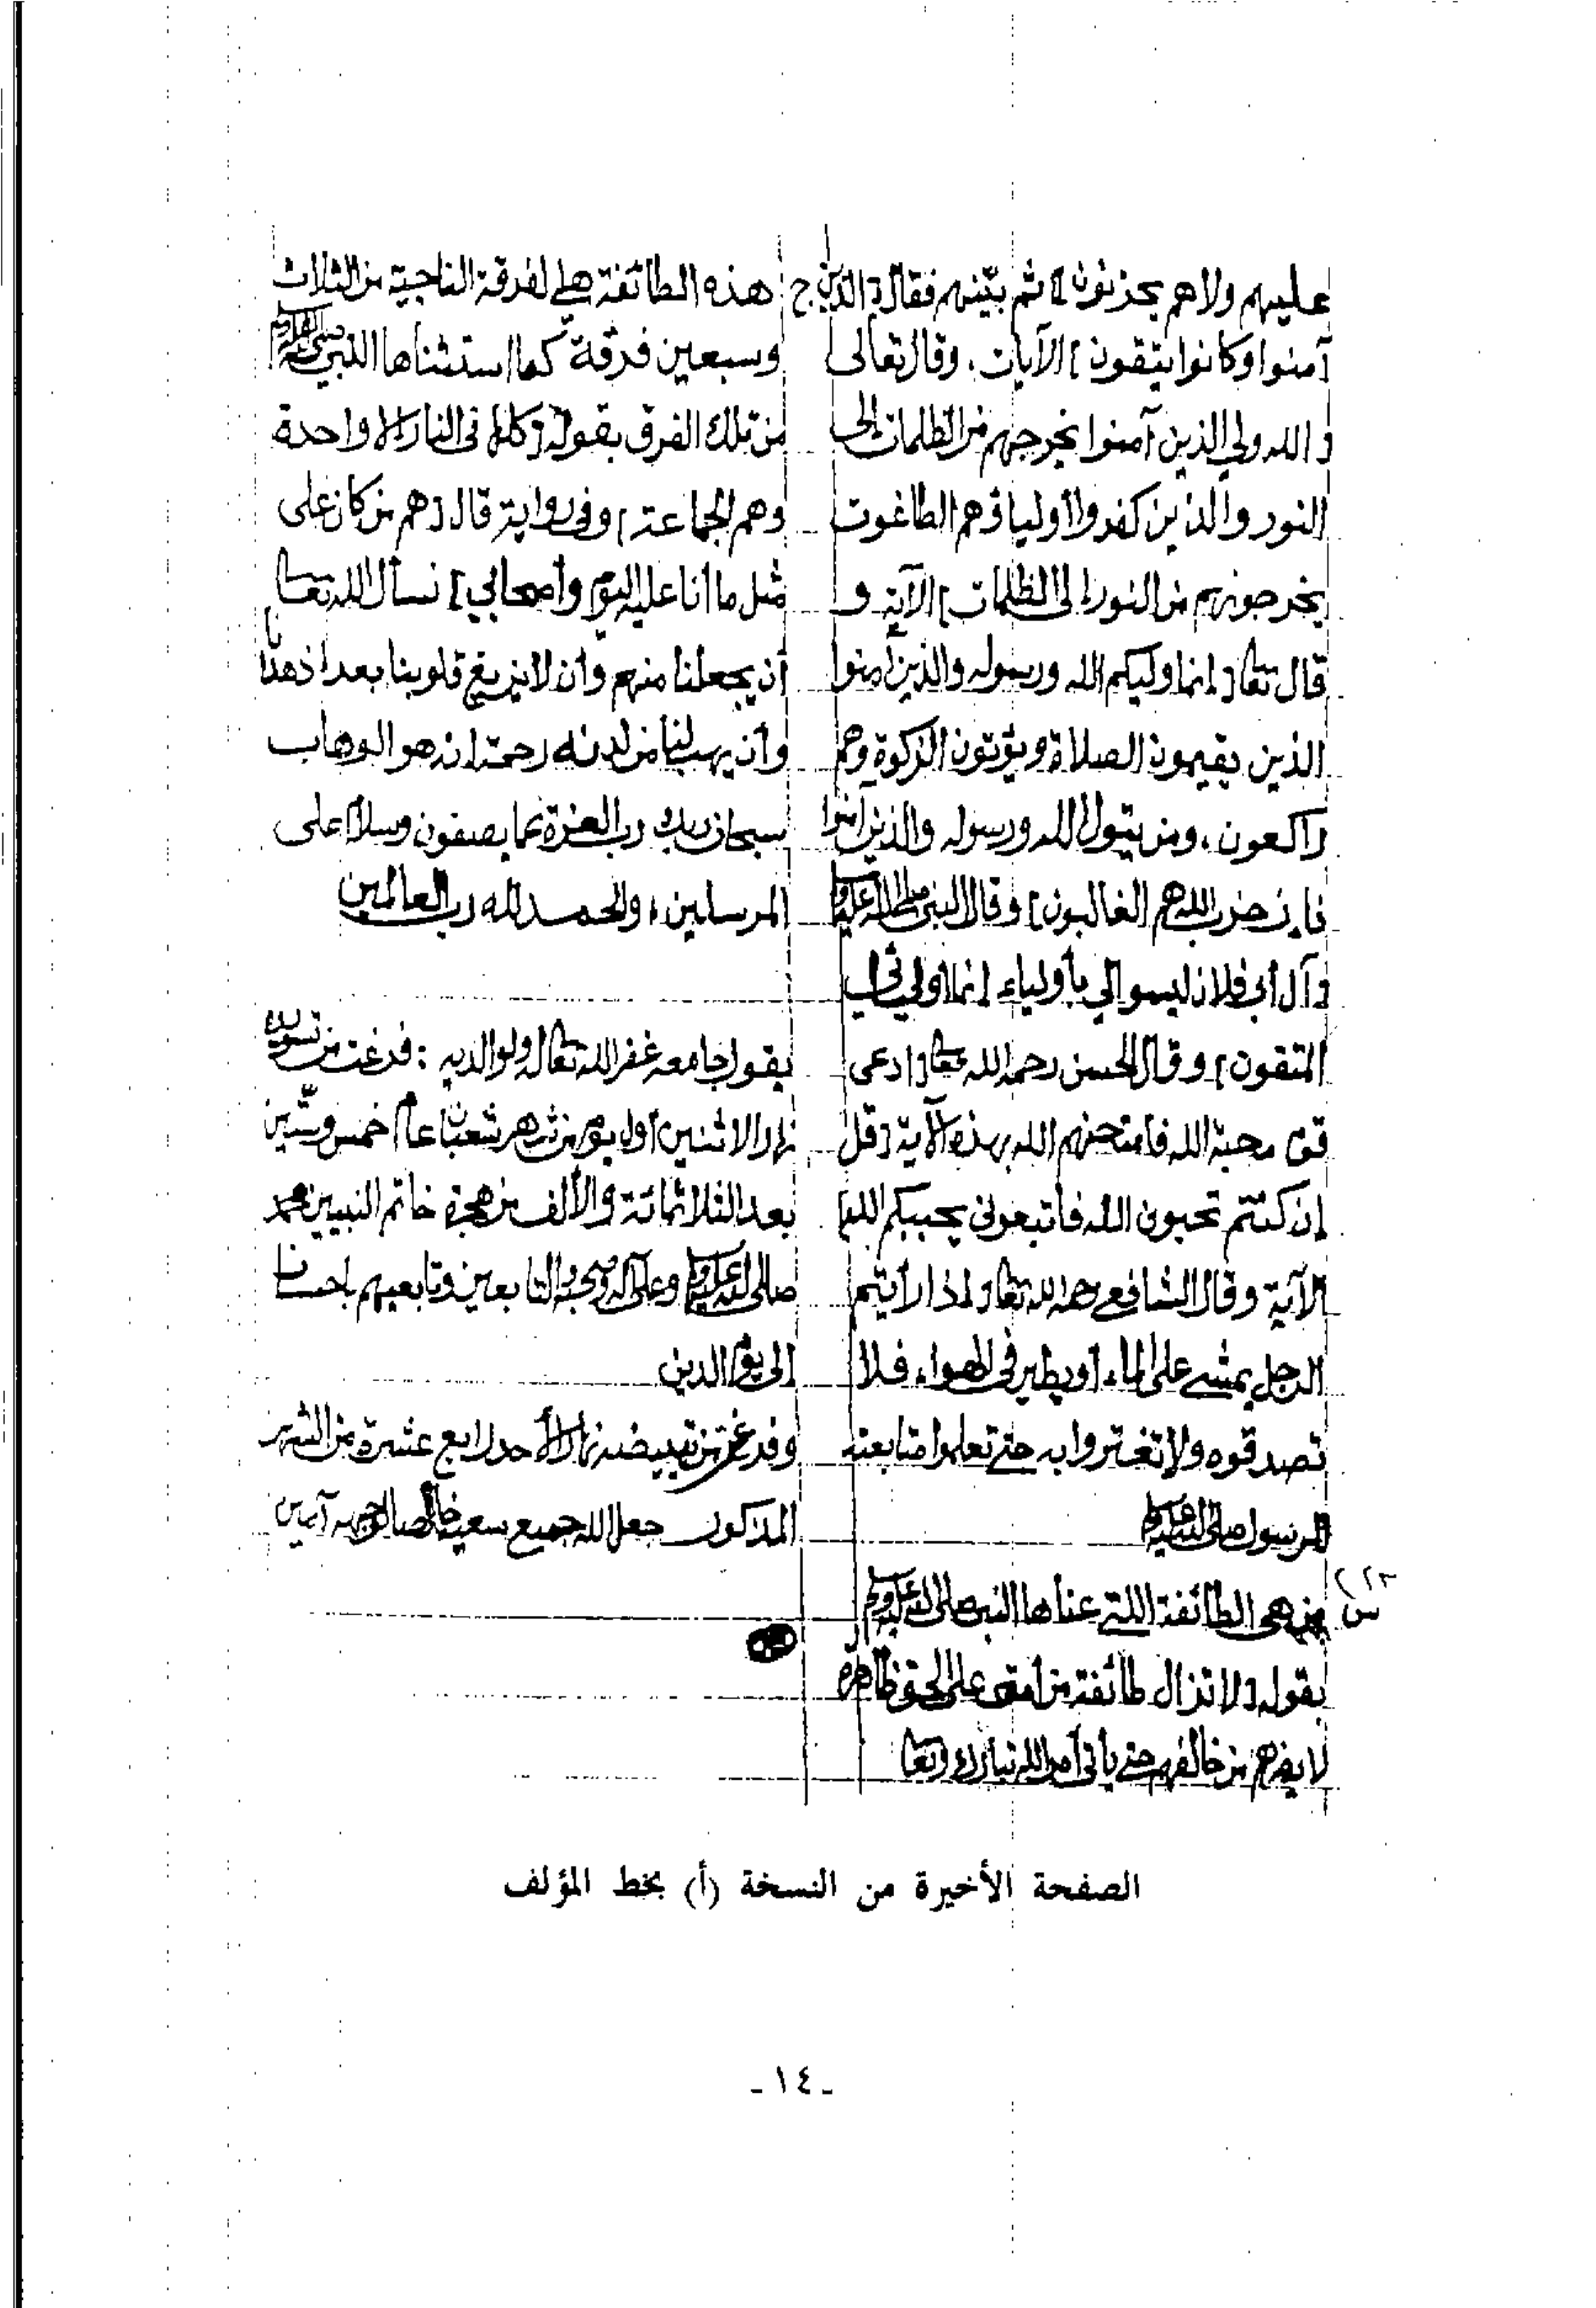 عليهم ولا هم يحزنون] ثم بينهم فقال [الذين
آمنوا وكانوا يتقون] الآيات، وقال تعالى
[الله ولي الذين آمنوا يخرجهم من الظلمات إلى
النور والذين كفروا أولياؤهم الطاغوت
يخرجونهم من النور إلى الظلمات] الآية و
قال تعا [إنما وليكم الله ورسوله والذين آمنوا
الذين يقيمون الصلاة ويؤتون الزكوة وهم
راكعون، ومن يتول الله ورسوله والذين آمنوا
فإن حزب الله هم الغالبون] وقال النبي صلى الله عليه وسلم
[آل أبي فلان ليسوا لي بأولياء إنما أوليائي
المتقون] وقال الحسن رحمه الله تعا [ادعى
قوم محبة الله فامتحنهم الله بهذه الآية [قل
إن كنتم تحبون الله فاتبعوني يحببكم الله]
الآية وقال الشافعي رحمه الله تعا [إذا رأيتم
الرجل يمشي على الماء أو يطير في الهواء فلا
تصدقوه ولا تغتروا به حتى تعلموا متابعته
للرسول صلى الله عليه وسلم
س من هي الطائفة اللتي عناها النبي صلى الله عليه وسلم
بقوله [لا تزال طائفة من أمتي على الحق ظاهرة
لا يضرهم من خالفهم حتى يأتي أمر الله تبارك وتعا
ج هذه الطائفة هي الفرقة الناجية من الثلاث
وسبعين فرقة كما استثناها النبي صلى الله عليه وسلم
من تلك الفرق بقوله [كلها في النار إلا واحدة
وهم الجماعة] وفي رواية قال [هم من كان على
مثل ما أنا عليه اليوم وأصحابي] نسأل الله تعا
أن يجعلنا منهم وأن لا يزيغ قلوبنا بعد إذ هدانا
وأن يهب لنا من لدنه رحمة إنه هو الوهاب
سبحان ربك رب العزة عما يصفون وسلام على
المرسلين، والحمد لله رب العالمين
يقول جامعه غفر الله تعالى له ولوالديه: فرغت من تسويده
نهار الاثنين أول يوم من شهر شعبان عام خمس وستين
بعد الثلاثمائة والألف من هجرة خاتم النبيين محمد
صلى الله عليه وسلم وعلى آله وصحبه والتابعين وتابعيهم بإحسان
إلى يوم الدين
وفرغت من تبييضه نهار الأحد رابع عشرة من الشهر
المذكور جعل الله جميع سعينا خالصا لوجهه آمين
الصفحة الأخيرة من النسخة (أ) بخط المؤلف
- ١٤ -